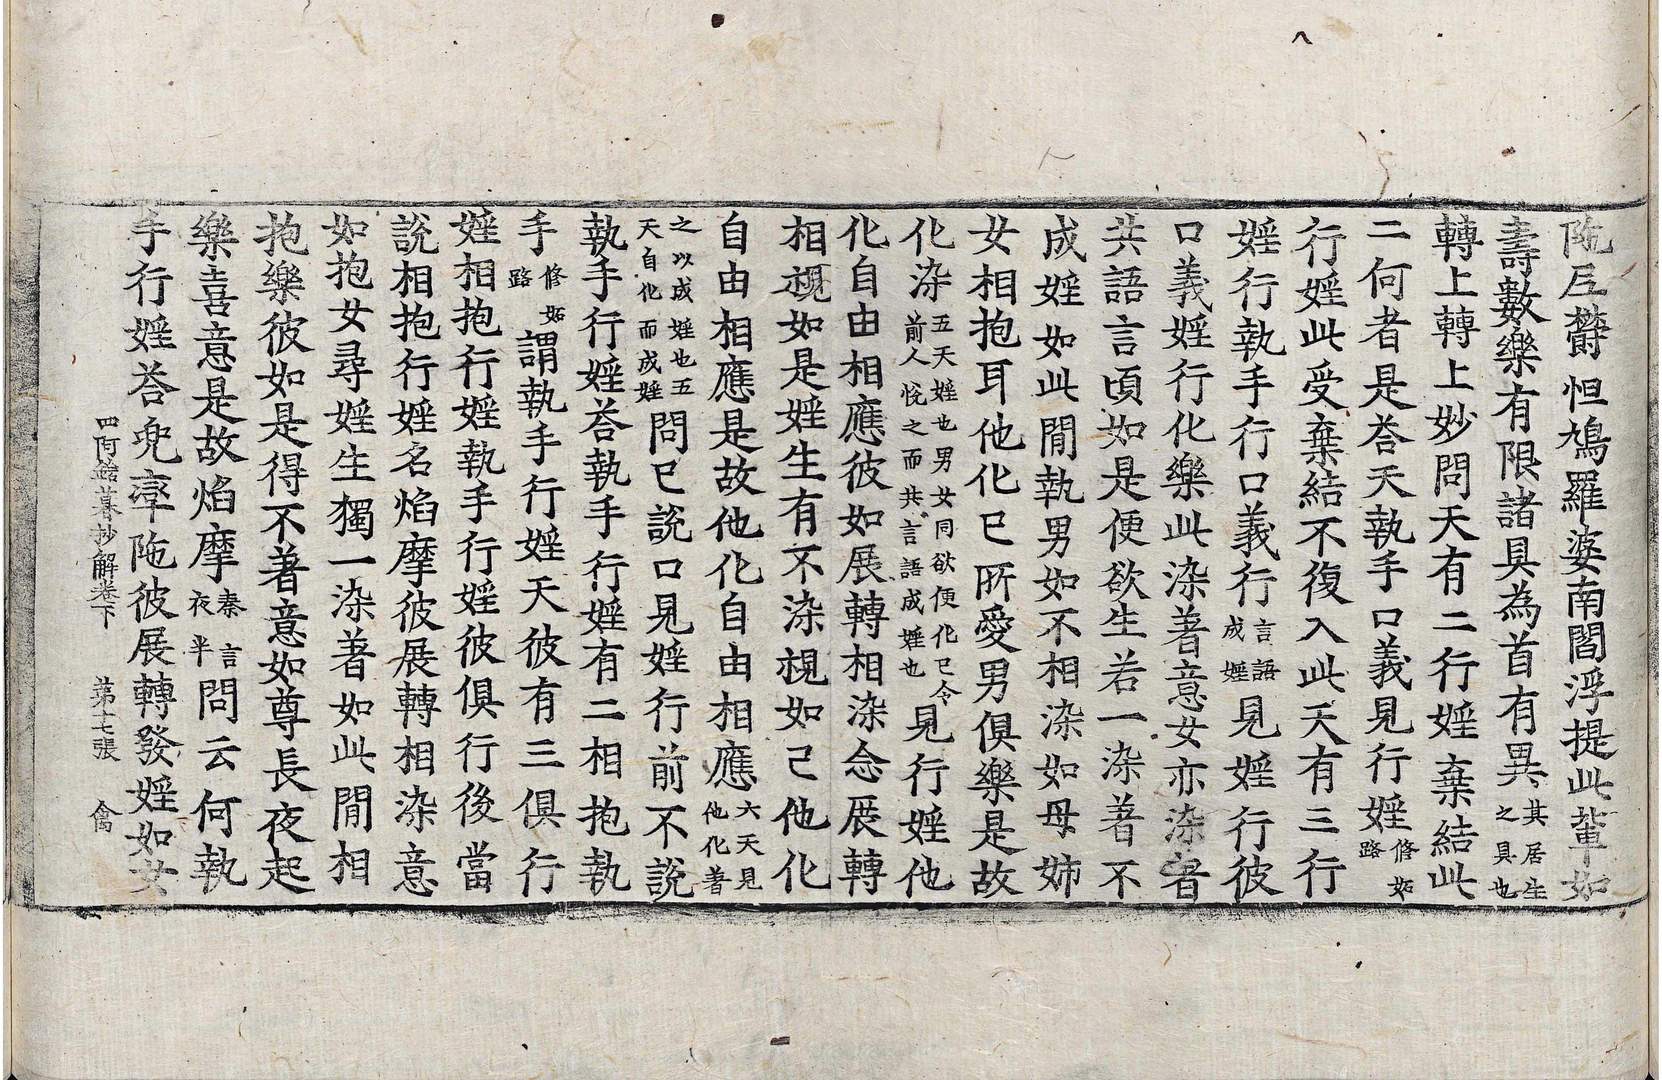 陁尼欝怛鳩羅婆南閻浮提此輩如
壽數樂有限諸具為首有異其居生之具也
轉上轉上妙問天有二行婬棄結此
二何者是荅天執手口義見行婬修妬路
行婬此受棄結不復入此天有三行
婬行執手行口義行言語成婬見婬行彼
口義婬行化樂此染著意女亦染著
共語言頃如是便欲生若一染著不
成婬如此閒執男如不相染如母姉
女相抱耳他化已所愛男俱樂是故
化染五天婬也男女同欲便化已令前人悅之而共言語成婬也見行婬他
化自由相應彼如展轉相染念展轉
相視如是婬生有不染視如己他化
自由相應是故他化自由相應六天見他化著
之以成婬也五天自化而成婬問已說口見婬行前不說
執手行婬荅執手行婬有二相抱執
手修妬路謂執手行婬天彼有三俱行
婬相抱行婬執手行婬彼俱行後當
說相抱行婬名焰摩彼展轉相染意
如抱女尋婬生獨一染著如此閒相
抱樂彼如是得不著意如尊長夜起
樂喜意是故焰摩秦言夜半問云何執
手行婬荅兜率陁彼展轉發婬如女
四阿鋡暮抄解卷下　第十七張　禽